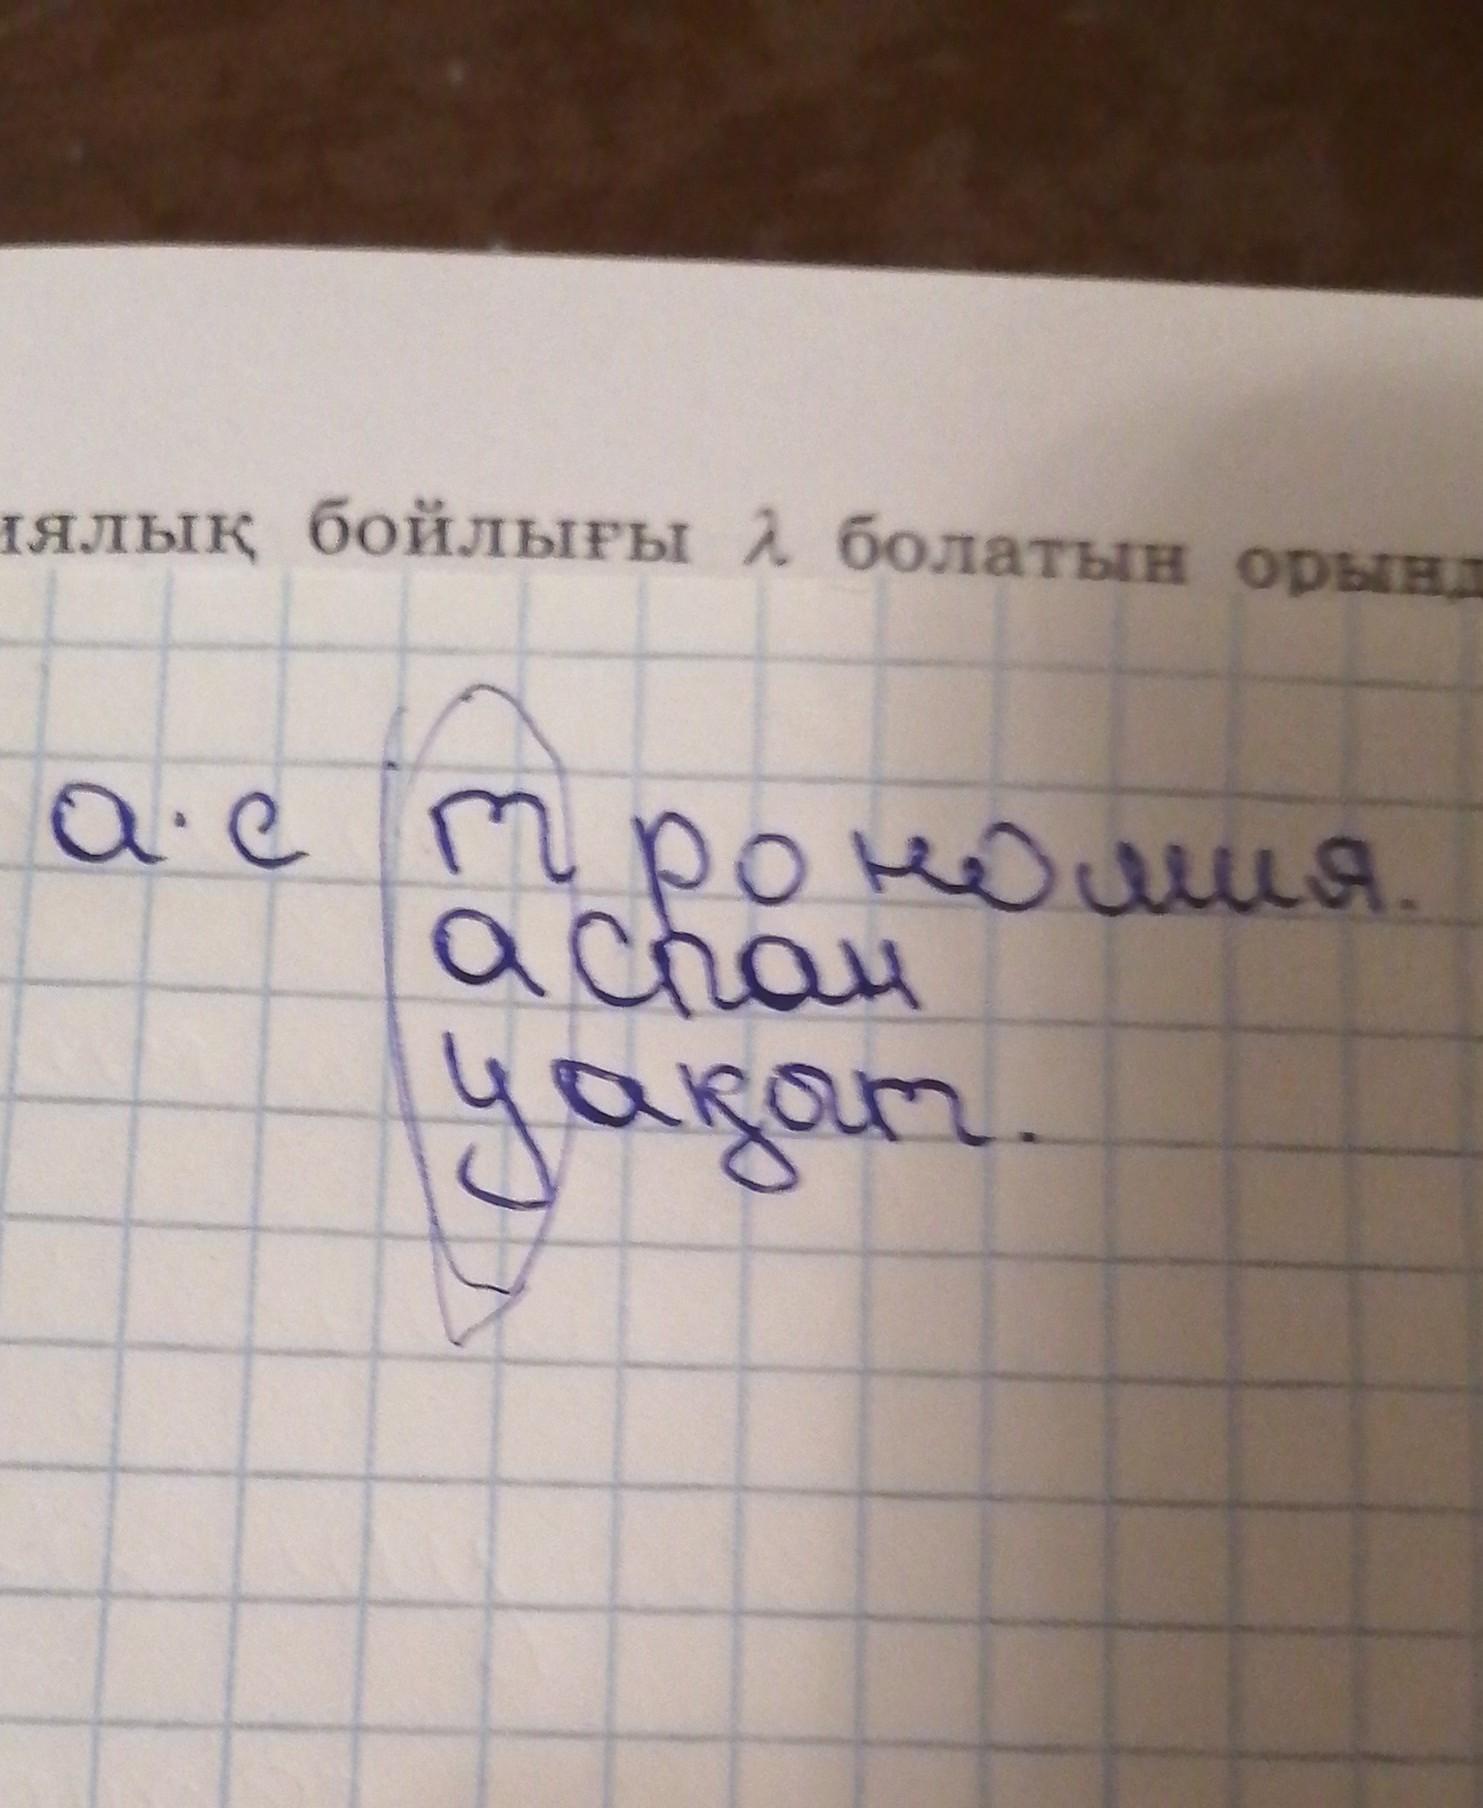 иялық бойлығы λ болатын орынд
а.строномия.
аспан
уақыт.